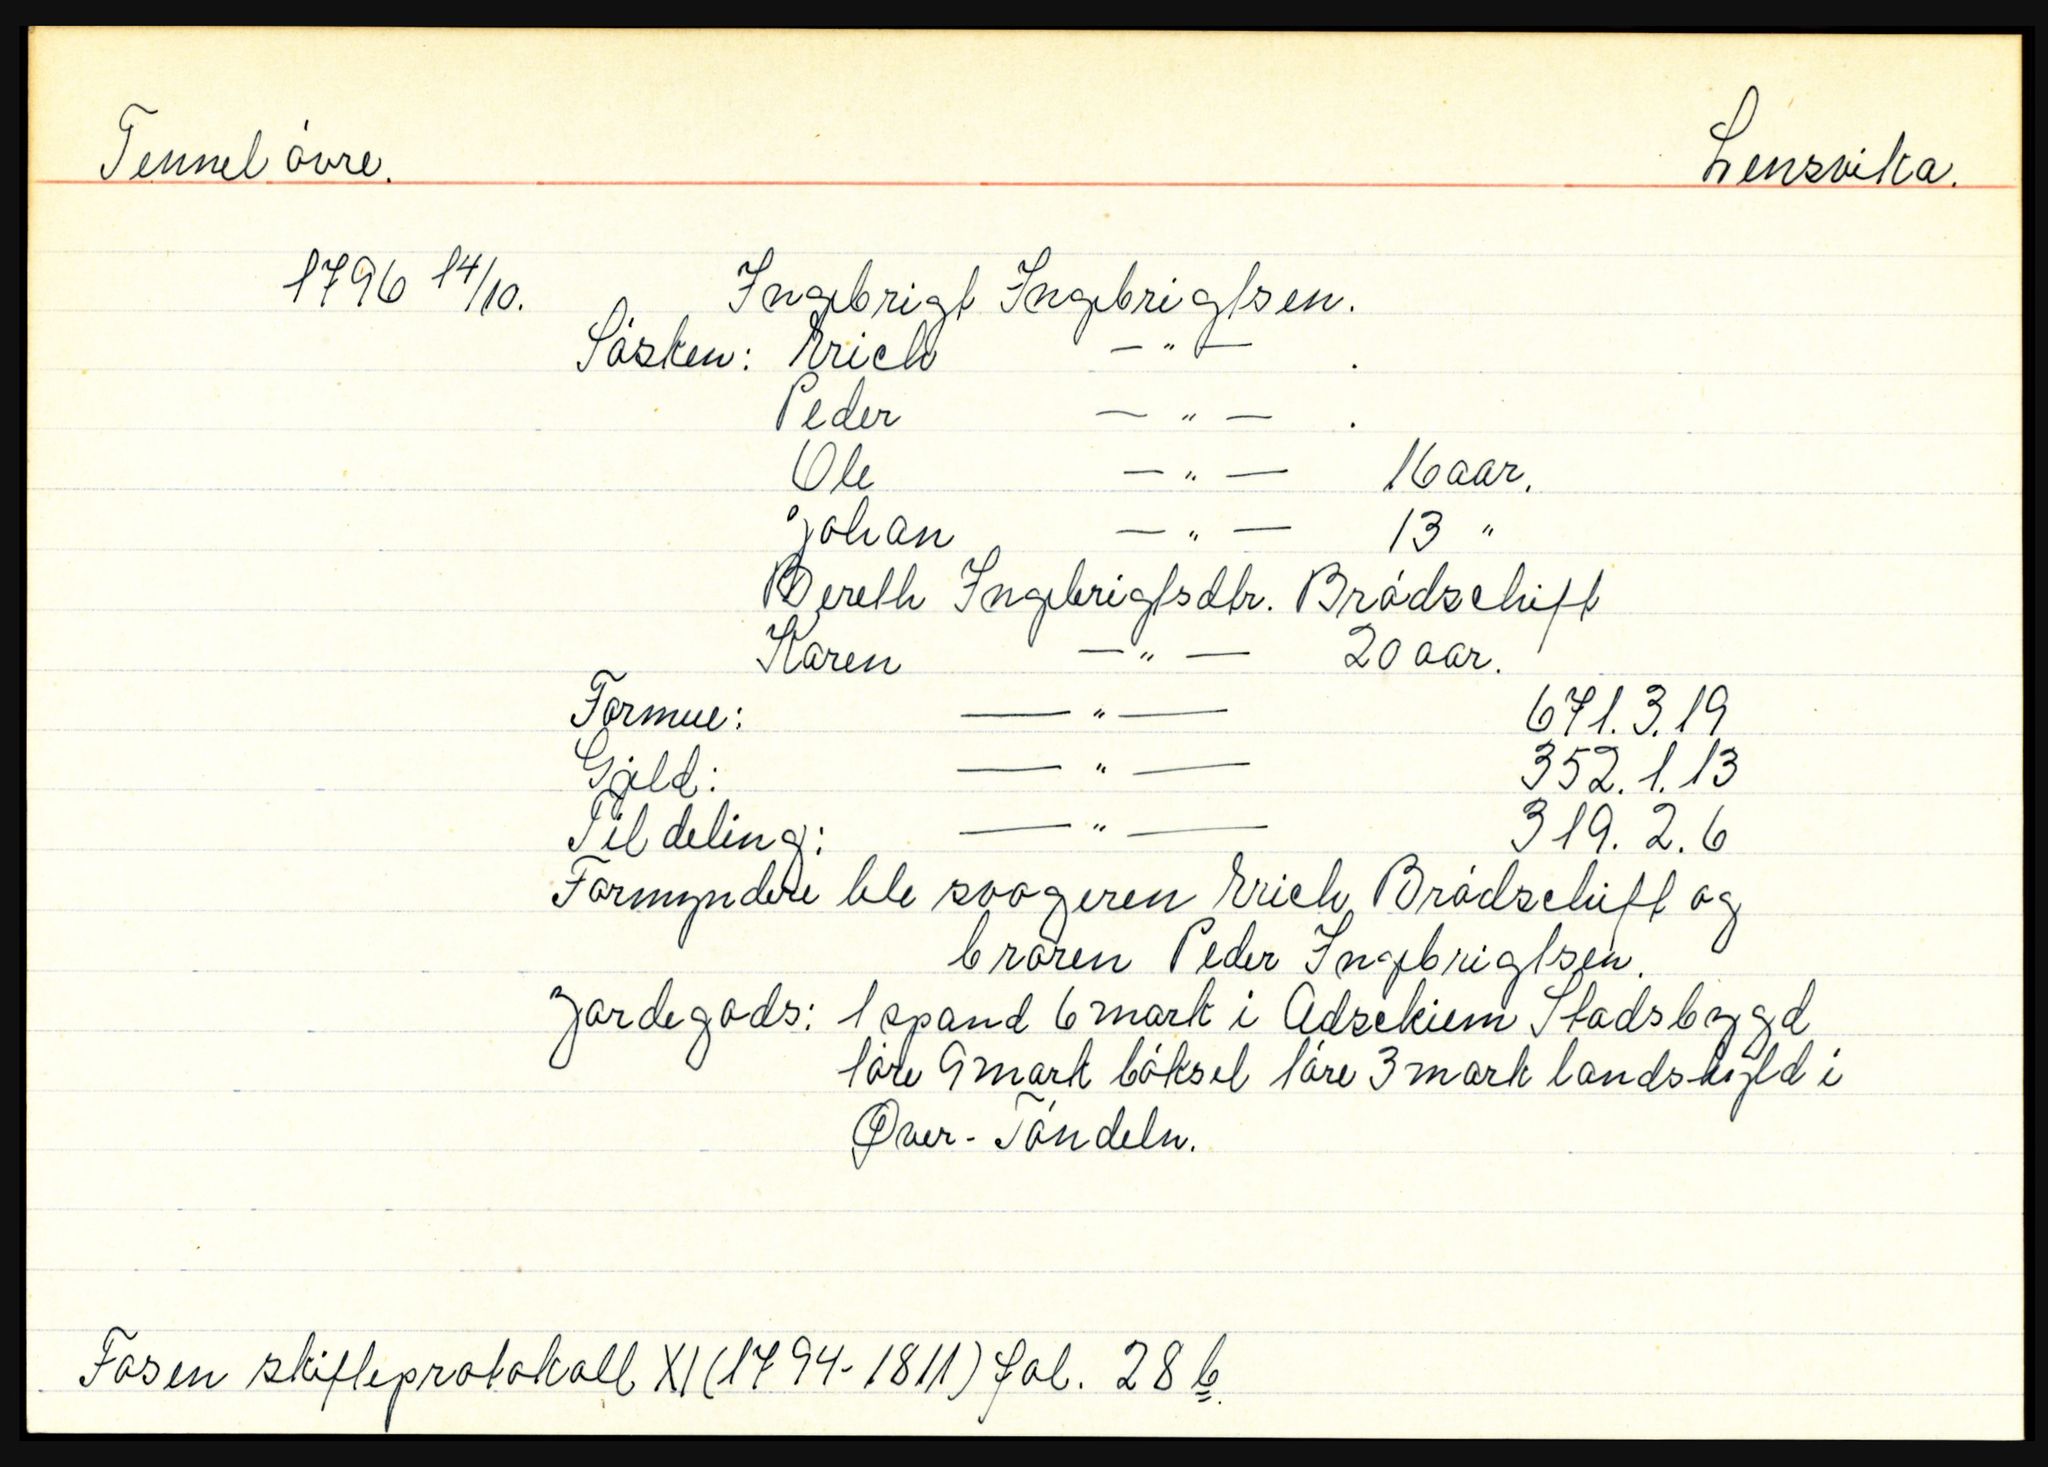 Tennel övre. Lensvika.
1796 14/10. Ingebrigt Ingebrigtsen.
Sösken: Erich —"— .
Peder —"— .
Ole —"— 16 aar.
Johan —"— 13 "
Bereth Ingebrigtsdtr. Brödschift
Karen —"— 20 aar.
Formue: —"— 671.3.19
Gjeld: —"— 352.1.13
Til deling: —"— 319.2.6
Formyndere ble svogeren Erich Brödschift og
broren Peder Ingebrigtsen.
Jordegods: 1 spand 6 mark i Adzekiem Stadsbygd
1öre 9 mark böksel 1öre 3 mark landskyld i
Över-Töndeln.
Fosen skifteprotokoll XI (1794-1811) fol. 28 b.